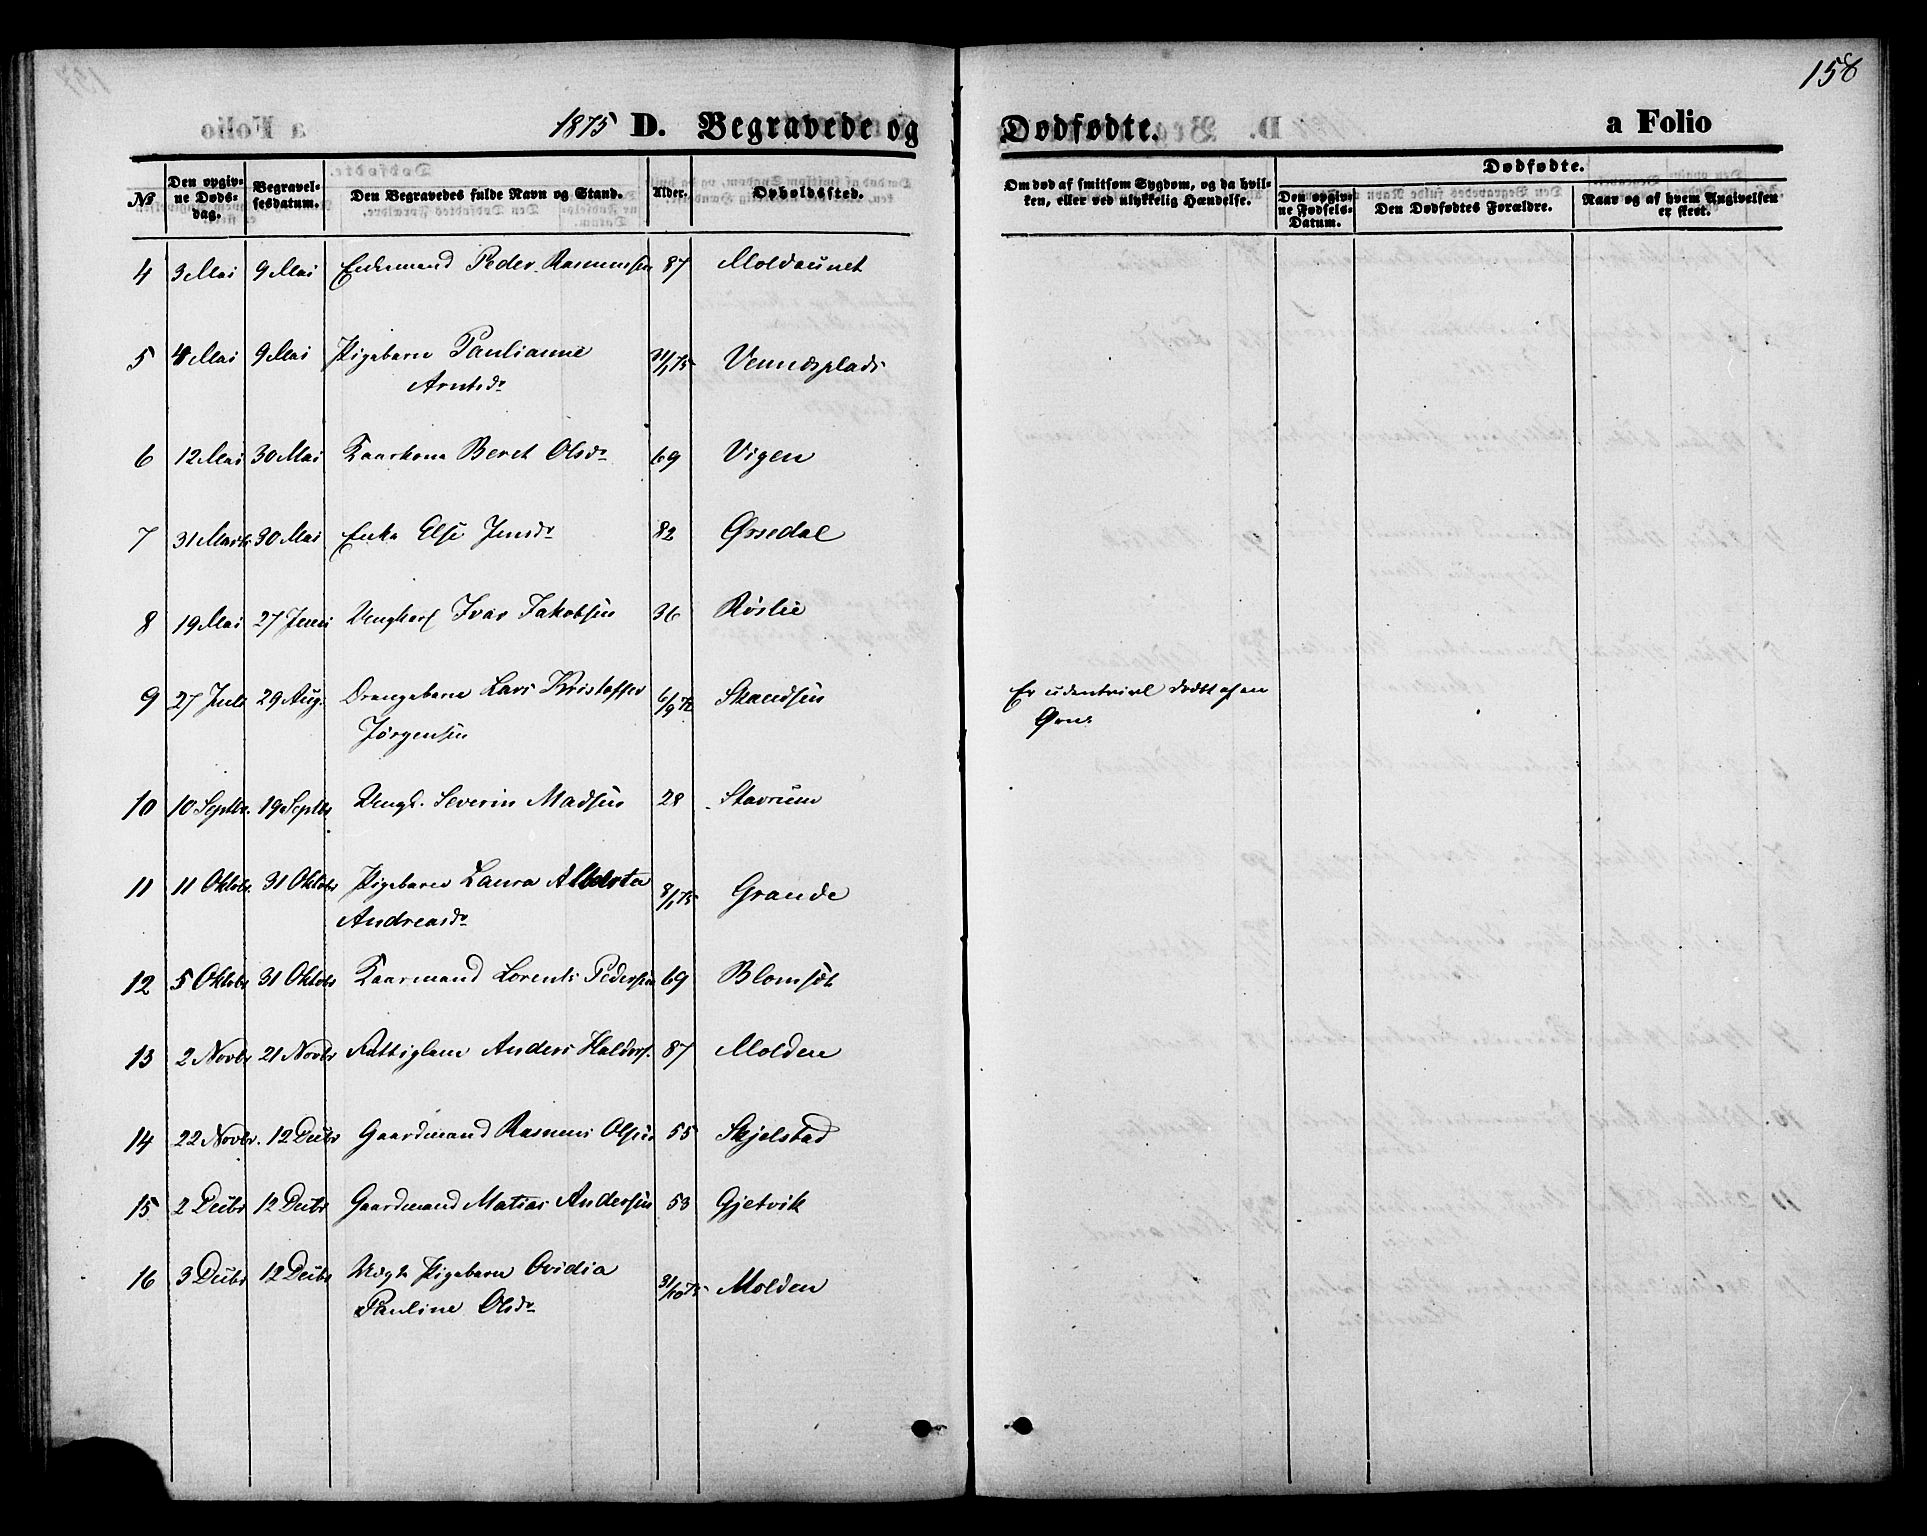 158
1875 D. Begravede og Dødfødte. a Folio
№
Den opgivne Dødsdag.
Begravelsesdatum.
Den Begravedes fulde Navn og Stand.
Alder.
Opholdssted.
Om død af smitsom Sygdom, og da hvilken, eller ved ulykkelig Hændelse.
Dødfødte.
Den opgivne Fødsels-Datum.
Den Dødfødtes Forældre.
Naar og af hvem Angivelsen er skeet.
4 3 Mai 9 Mai Enkemand Peder Rasmussen 87 Moldaunet
5 4 Mai 9 Mai Pigebarn Paulianne 31/1 75 Vennesplads
Arntsdr
6 12 Mai 30 Mai Kaarkone Beret Olsdr 69 Vigen
7 31 Marts 30 Mai Enke Else Jensdr 82 Øssedal
8 19 Mai 27 Juni Ungkarl Ivar Jakobsen 36 Røslie
9 27 Juli 29 Aug. Drengebarn Lars Kristoffer 6/9 72 Skandsen Er udentvivl dødt af en
Jørgensen Ørn
10 10 Septbr. 19 Septbr Ungk. Severin Madsen 28 Stavrum
11 11 Oktobr 31 Oktobr Pigebarn Laura Alberta 8/1 75 Grande
Andreasdr
12 5 Oktobr 31 Oktobr Kaarmand Lorents Pedersen 69 Blomsøt
13 2 Novbr 21 Novbr Fattiglem Anders Haldors. 87 Molden
14 22 Novbr. 12 Decbr Gaardmand Rasmus Olsen 55 Skjelstad
15 2 Decbr 12 Decbr Gaardmand Matias Andersen 53 Gjetvik
16 3 Decbr 12 Decbr Uægte Pigebarn Ovidia 31/10 75 Molden
Pauline Olsdr